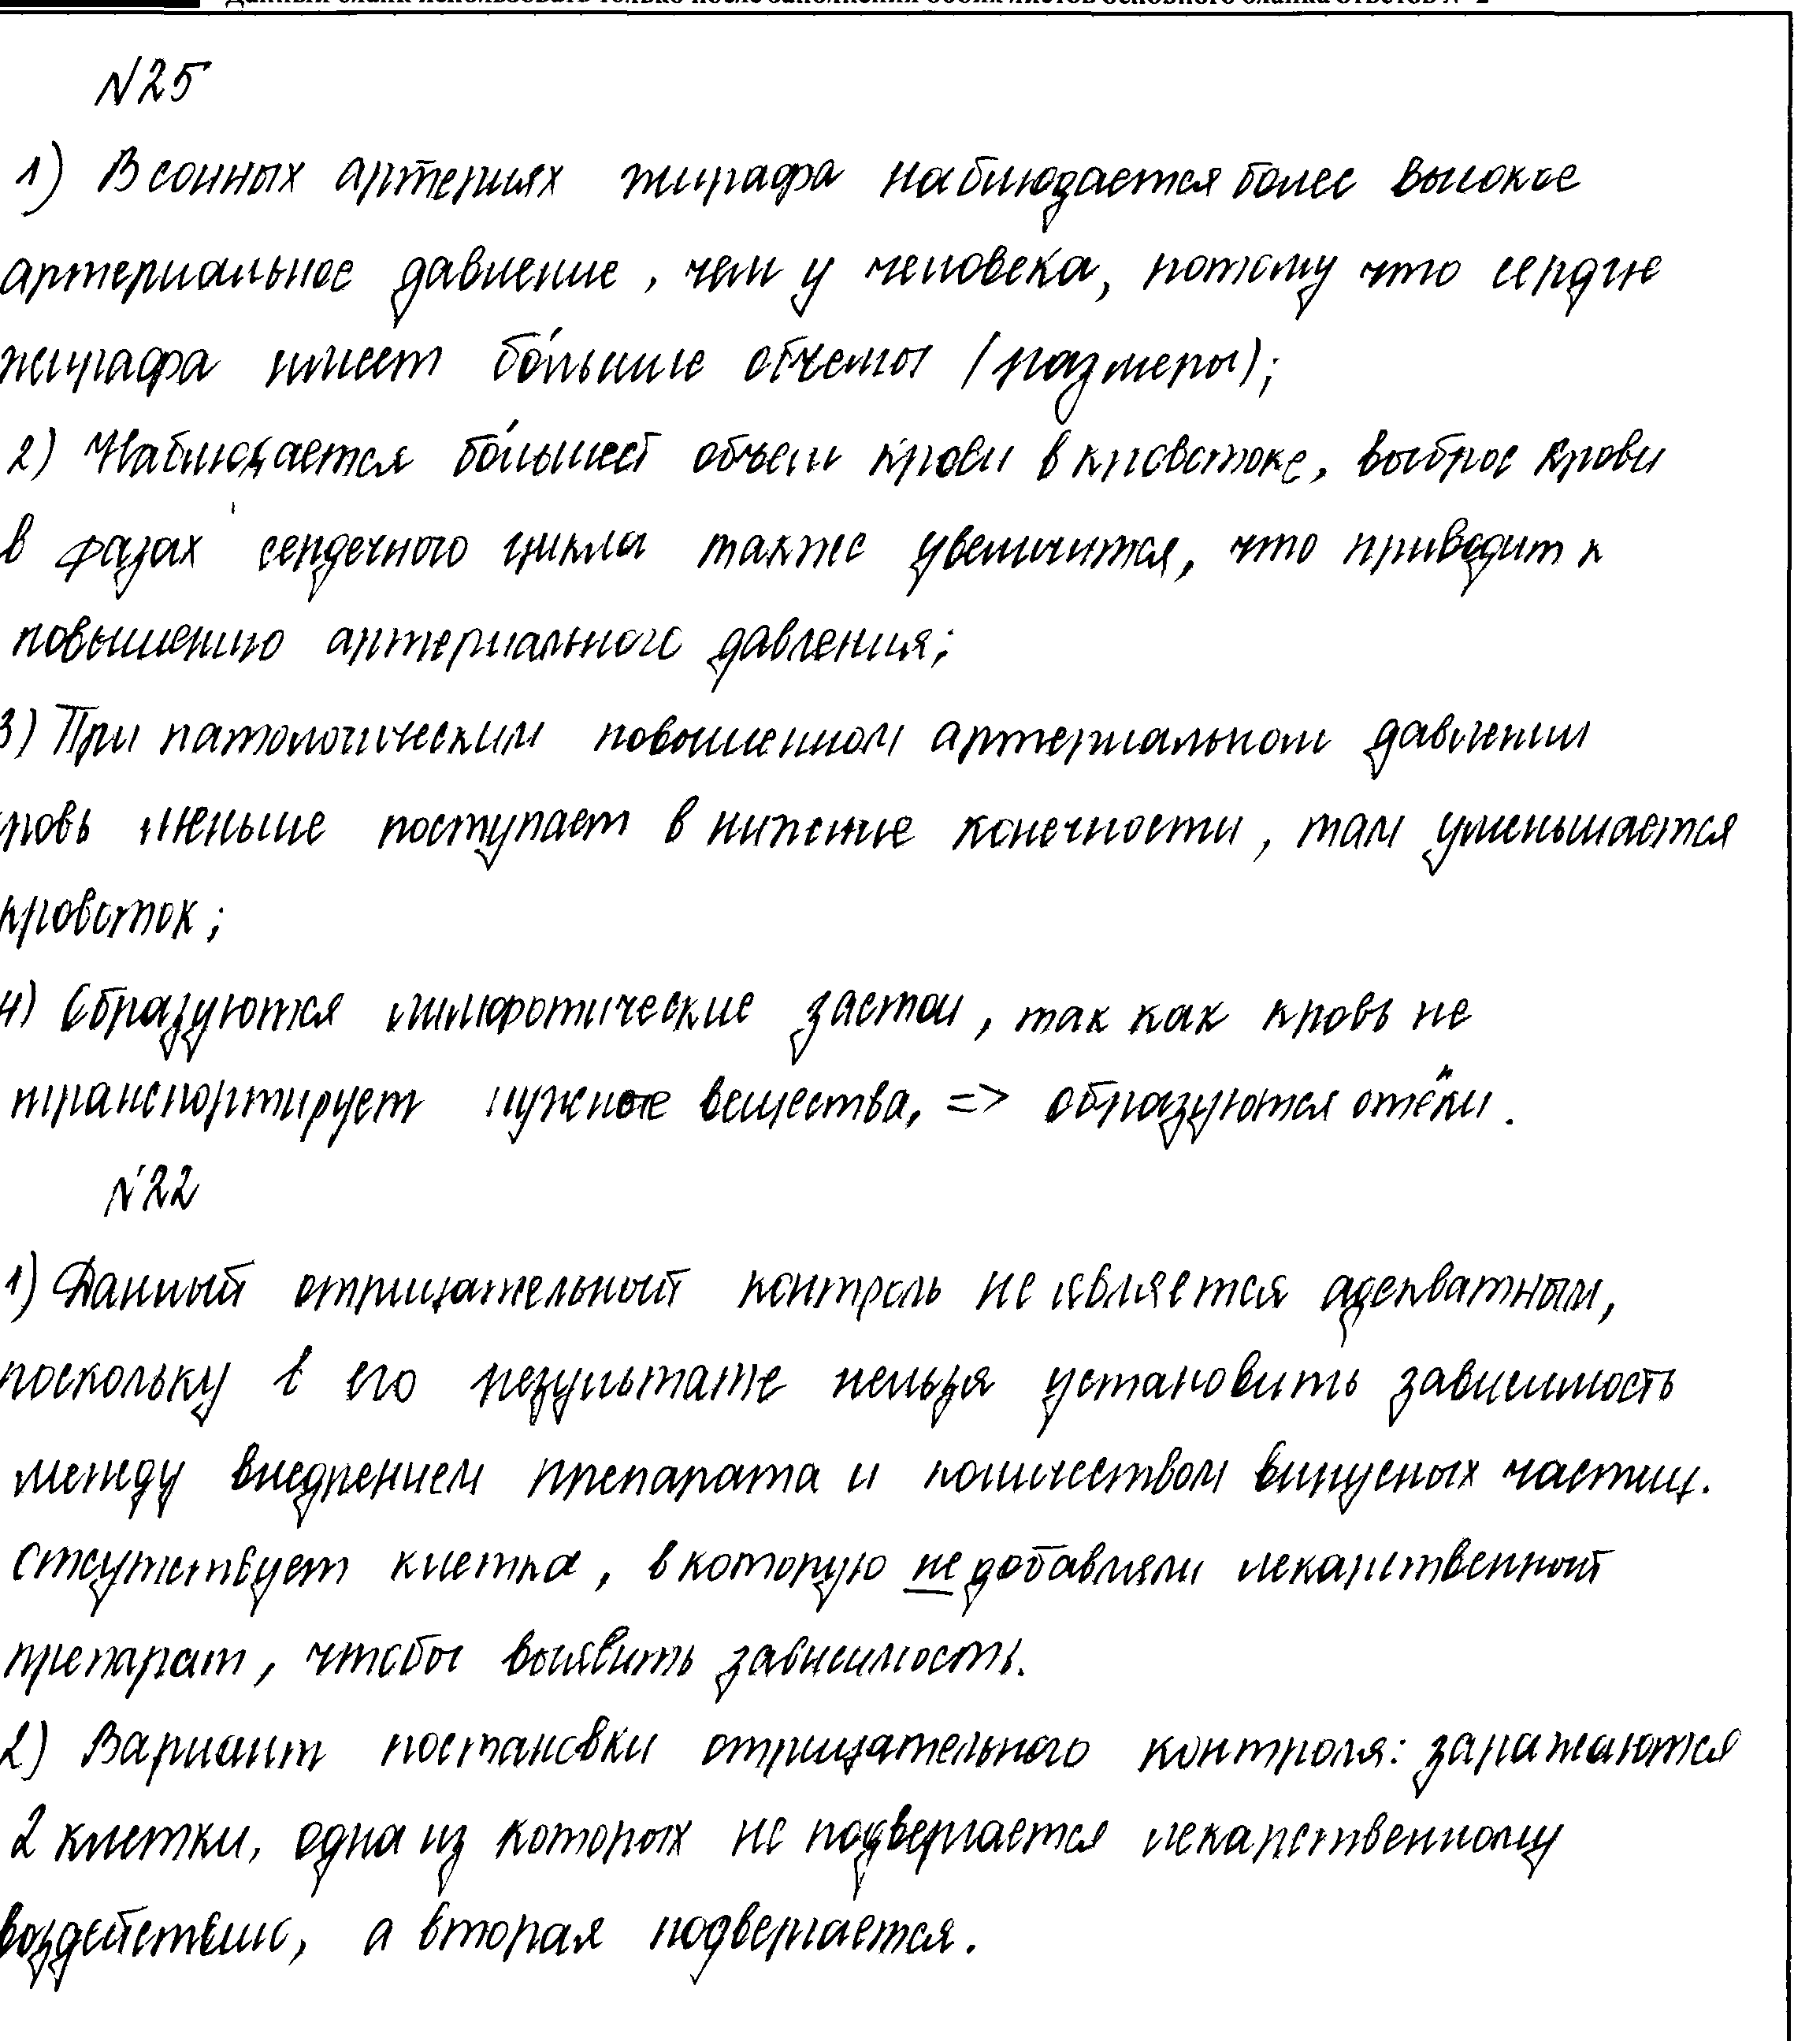 Данный бланк использовать только после заполнения обоих листов основного бланка ответов № 2
№25
1) В сонных артериях жирафа наблюдается более высокое
артериальное давление, чем у человека, потому что сердце
жирафа имеет бо́льшие объемы (размеры);
2) Наблюдается бо́льший объем крови в кровотоке, выброс крови
в фазах сердечного цикла также увеличится, что приводит к
повышению артериального давления;
3) При патологическим повышенном артериальном давлении
кровь меньше поступает в нижние конечности, там уменьшается
кровоток;
4) Образуются лимфотические застои, так как кровь не
транспортирует нужные вещества, => образуются отёки.
№22
1) Данный отрицательный контроль не является адекватным,
поскольку в его результате нельзя установить зависимость
между внедрением препарата и количеством вирусных частиц.
Отсутствует клетка, в которую не добавляли лекарственный
препарат, чтобы выявить зависимость.
2) Вариант постановки отрицательного контроля: заражаются
2 клетки, одна из которых не подвергается лекарственному
воздействию, а вторая подвергается.